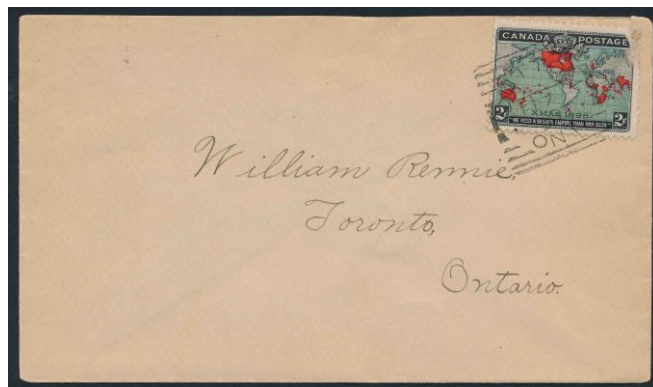 CANADA POSTAGE
XMAS 1898
2c "WE HOLD A VASTER EMPIRE THAN HAS BEEN" 2c
William Rennie,
Toronto,
Ontario.